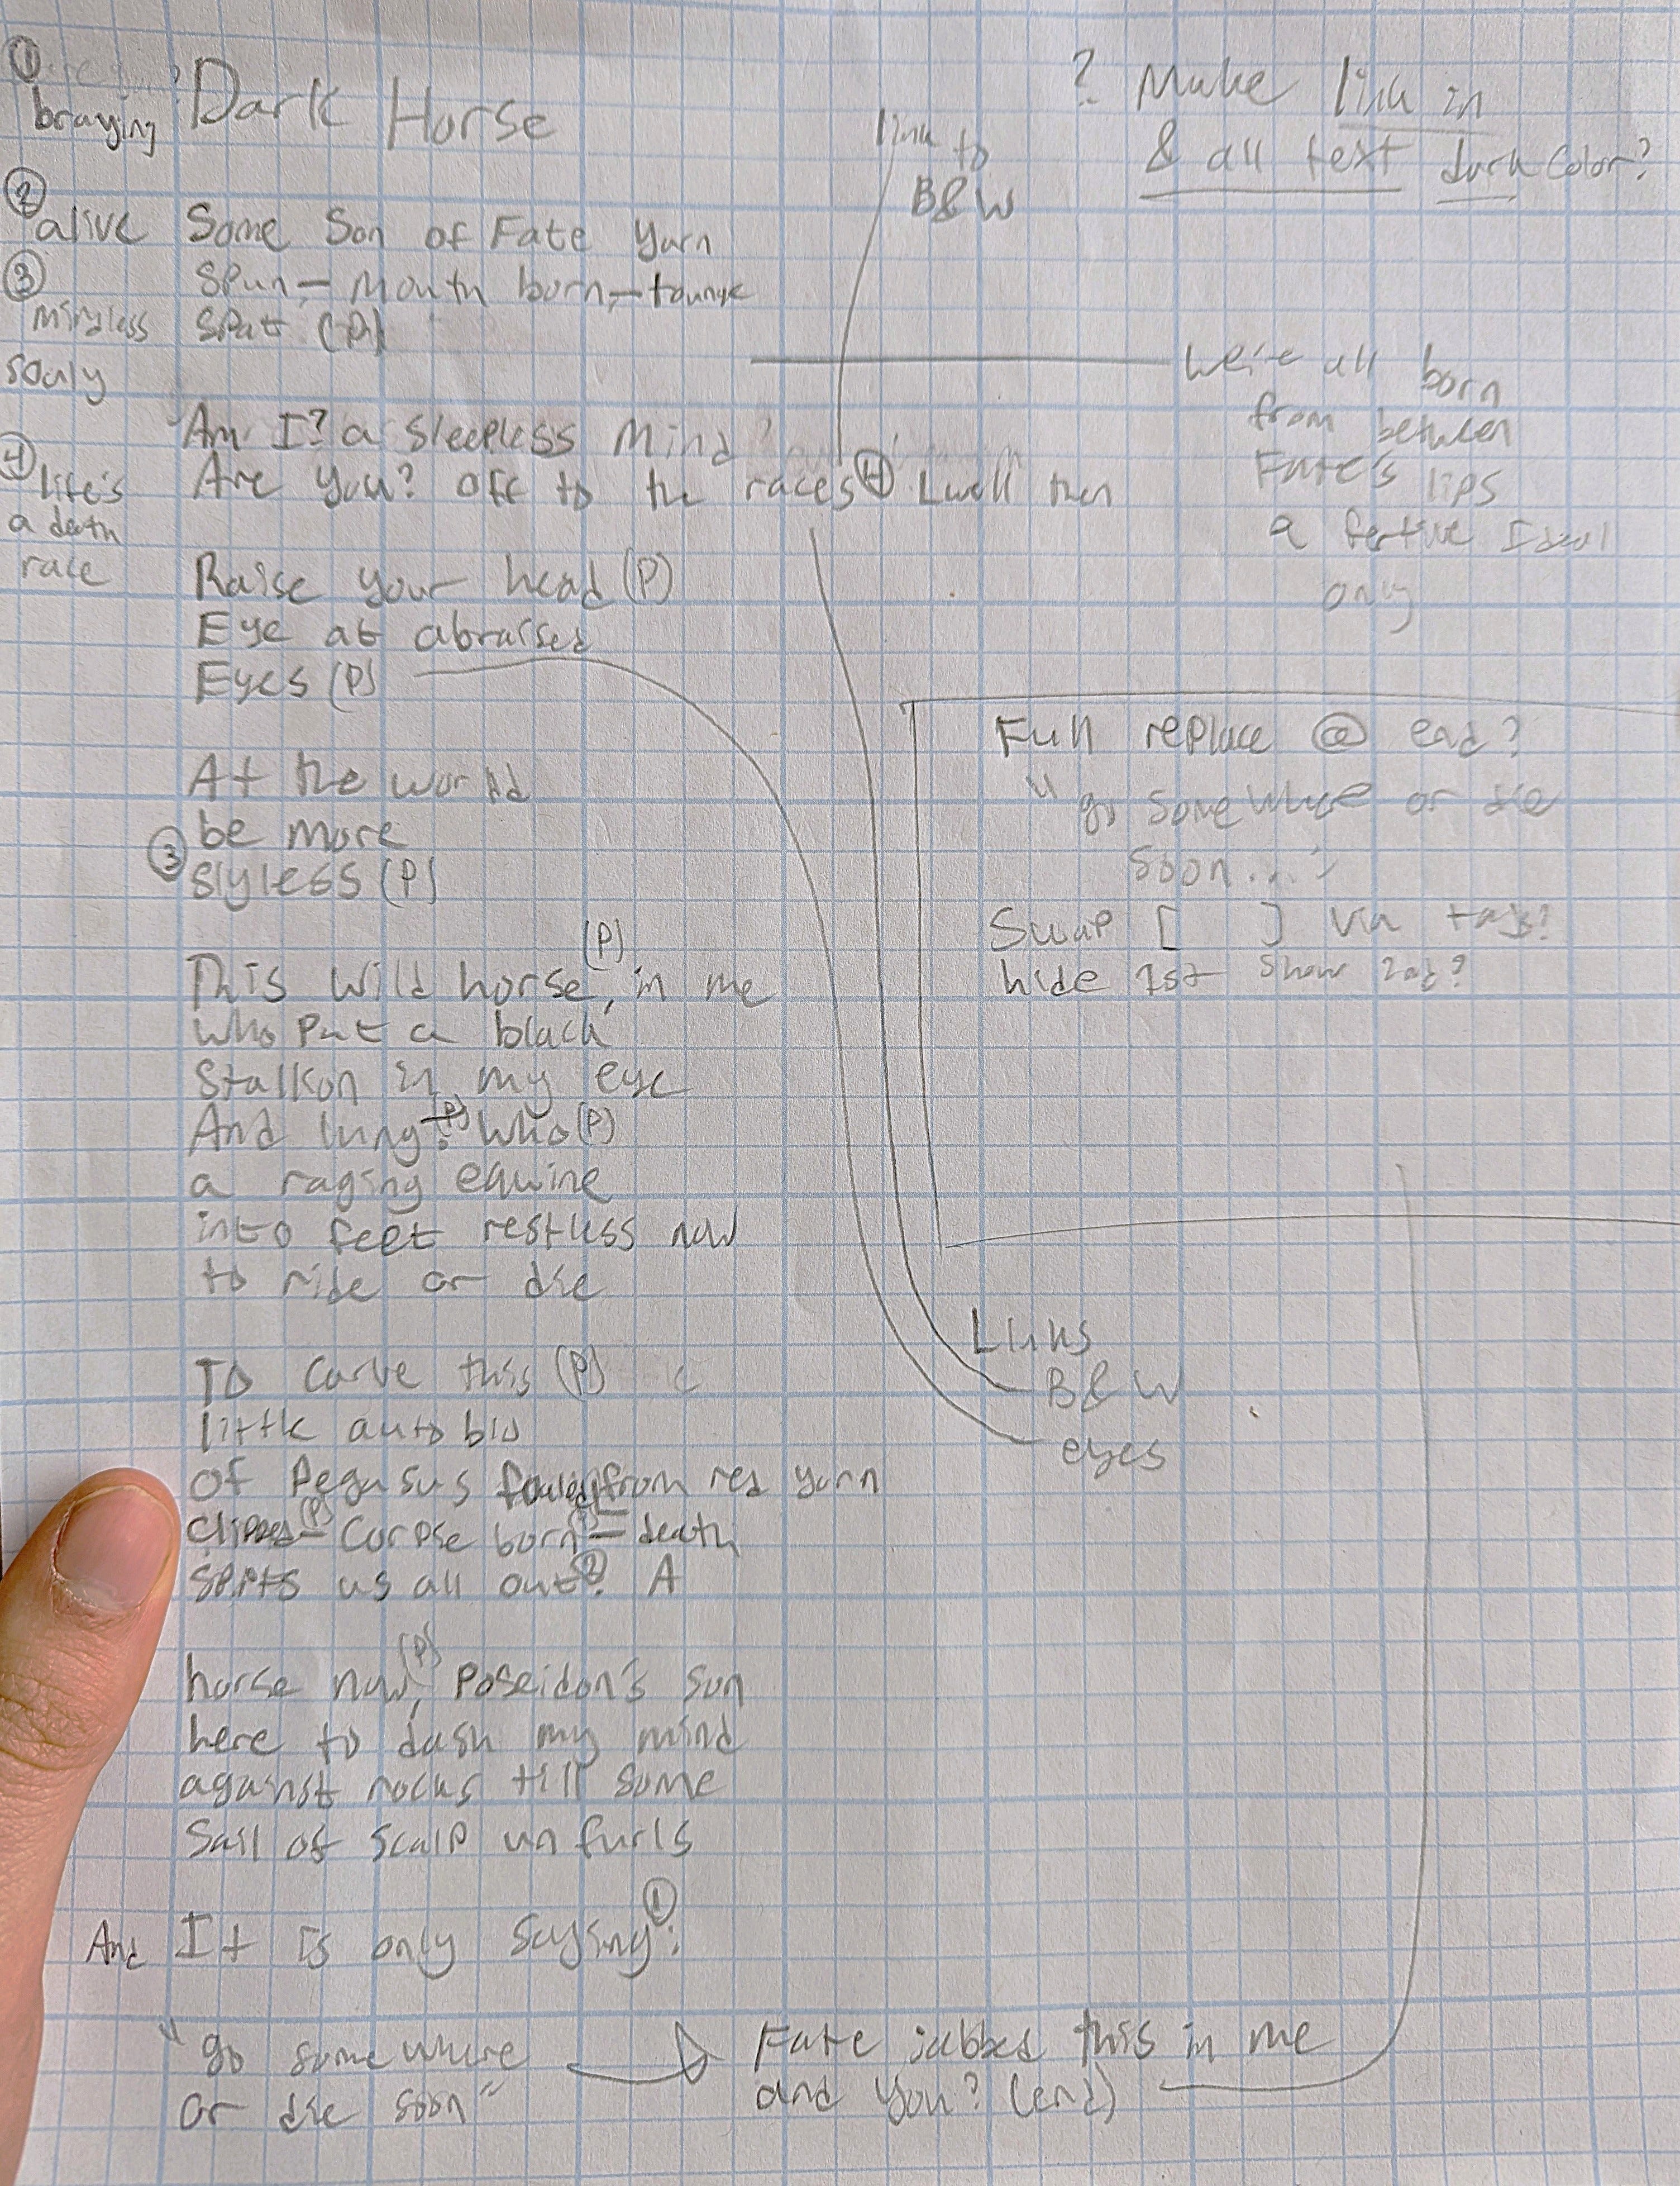 ①
braying
Dark Horse
link to
B&W
? Make link in
& all text dark color?
②
alive
Some Son of Fate yarn
③
Spun,— Mouth born,— tounge
mindless
Spat (P)
souly
We're all born
from between
Fate's lips
a only
Am I? a Sleepless Mind
④
life's
a death
race
Are you? off to the races ④ Lwell then
Raise your head (P)
Eye at abraised
Eyes (P)
At the world
be more
③
Slyless (P)
Full replace @ end?
"go Somewhere or die
soon..."
Swap [ ] via tags?
hide 1st show 2nd?
(P)
This wild horse, in me
who put a black
Stalkon in my eye
And lung (P)? Who (P)
a raging equine
into feet restless now
to ride or die
Links
B&W
eyes
To carve this (P)
little auto bio
of Pegasus from red yarn
Clipped (P) — Corpse born — death
Spits us all out ②? A
(P)
horse now, Poseidon's son
here to dash my mind
against rocks till some
Sail of scalp unfurls
①
And It is only saying:
"go somewhere
or die soon"
Fate jabbed this in me
and you? (end)